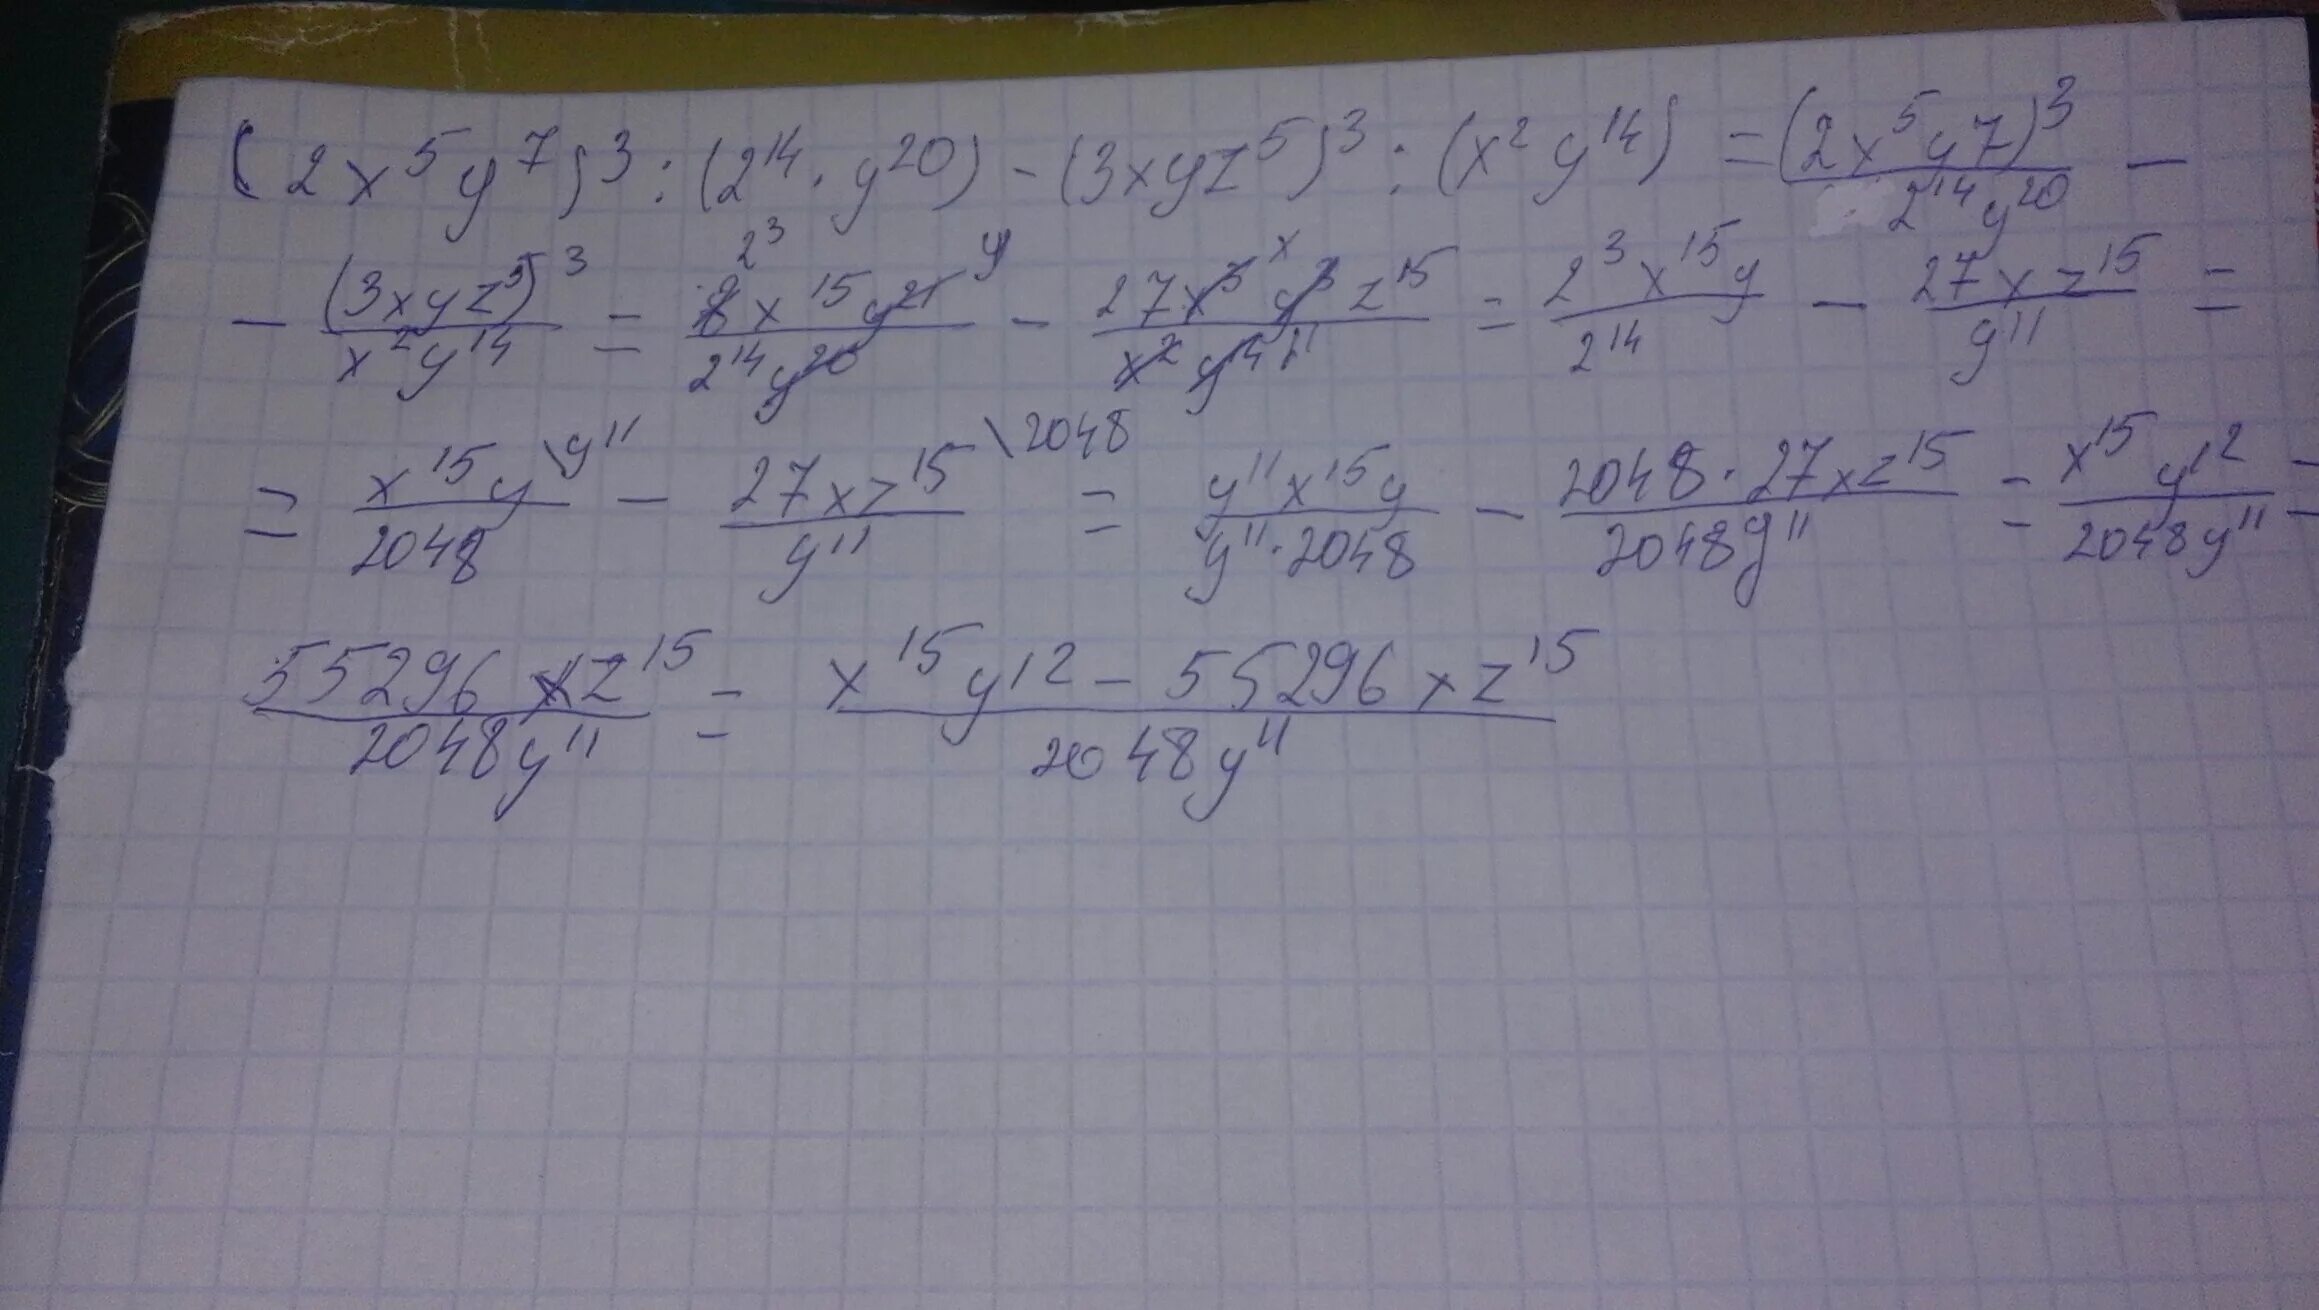 (2x⁵y⁷)³ : (2¹⁴ · y²⁰) − (3xyz⁵)³ : (x²y¹⁴) = (2x⁵y⁷)³/2¹⁴y²⁰ −
− (3xyz⁵)³/x²y¹⁴ = 2³ 8x¹⁵y²¹ y/2¹⁴y²⁰ − 27x³ x y³z¹⁵/x²y¹⁴ ¹¹ = 2³x¹⁵y/2¹⁴ − 27xz¹⁵/y¹¹ =
= x¹⁵y\y¹¹/2048 − 27xz¹⁵\2048/y¹¹ = y¹¹x¹⁵y/y¹¹·2048 − 2048·27xz¹⁵/2048y¹¹ = x¹⁵y¹²/2048y¹¹ −
55296xz¹⁵/2048y¹¹ = x¹⁵y¹² − 55296xz¹⁵/2048y¹¹